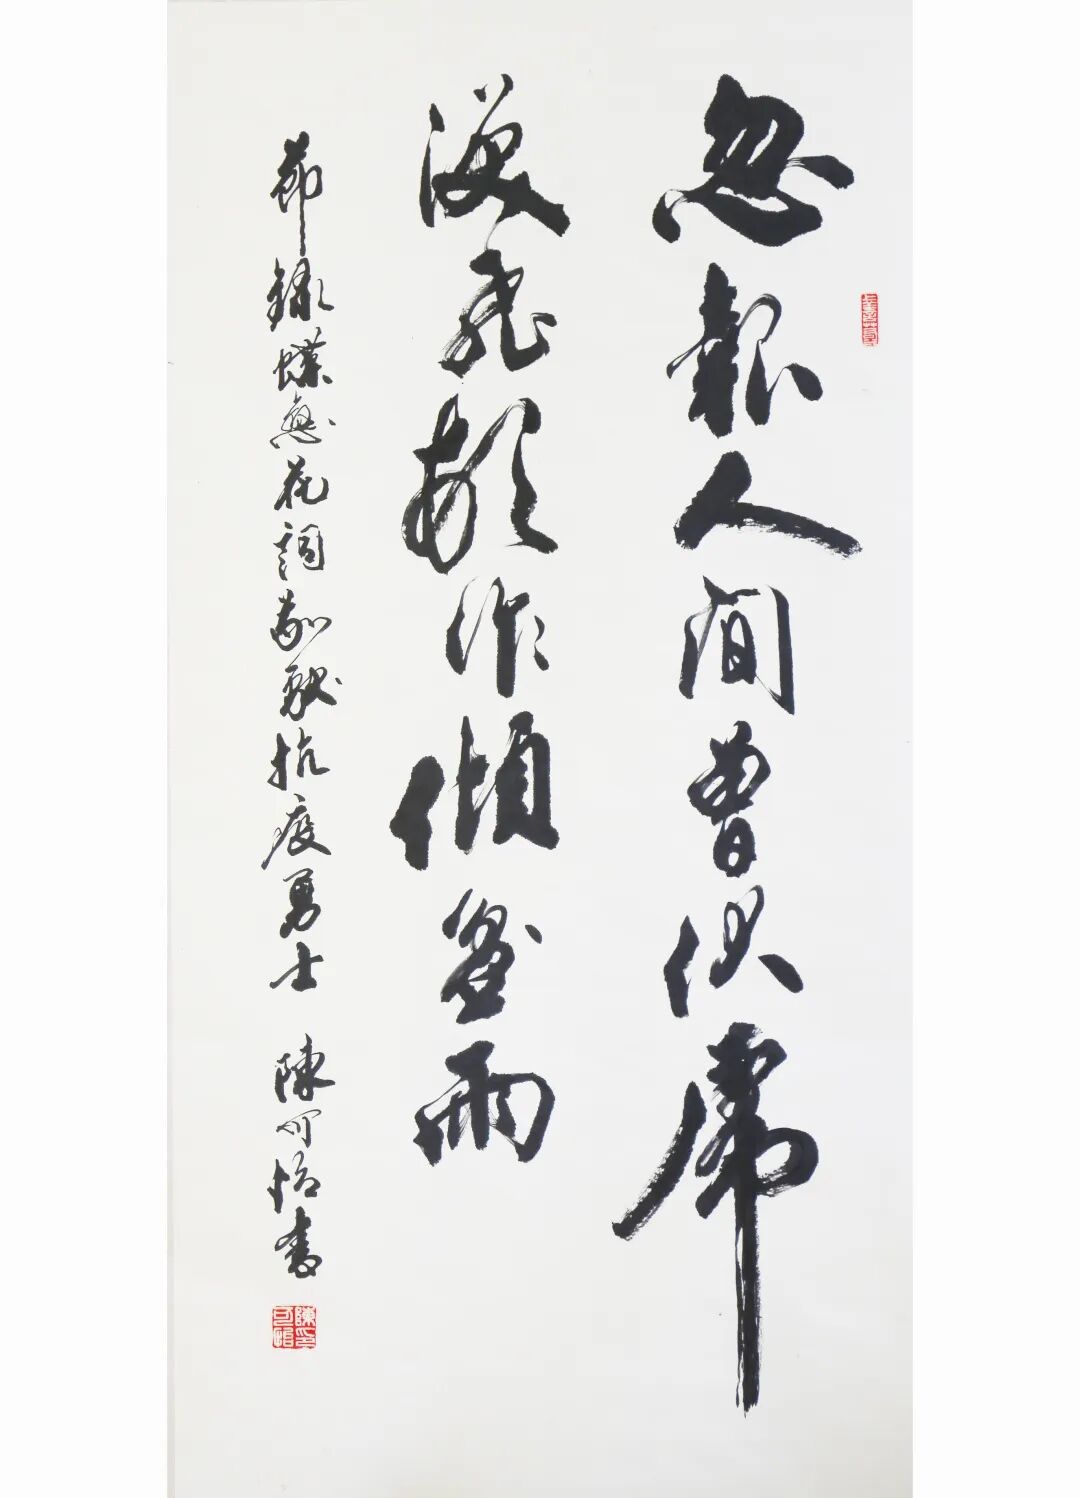 忽報人間曾伏虎
淚飛頓作傾盆雨
節錄蝶戀花詞敬獻抗疫勇士 陳可怡書
陳印可怡